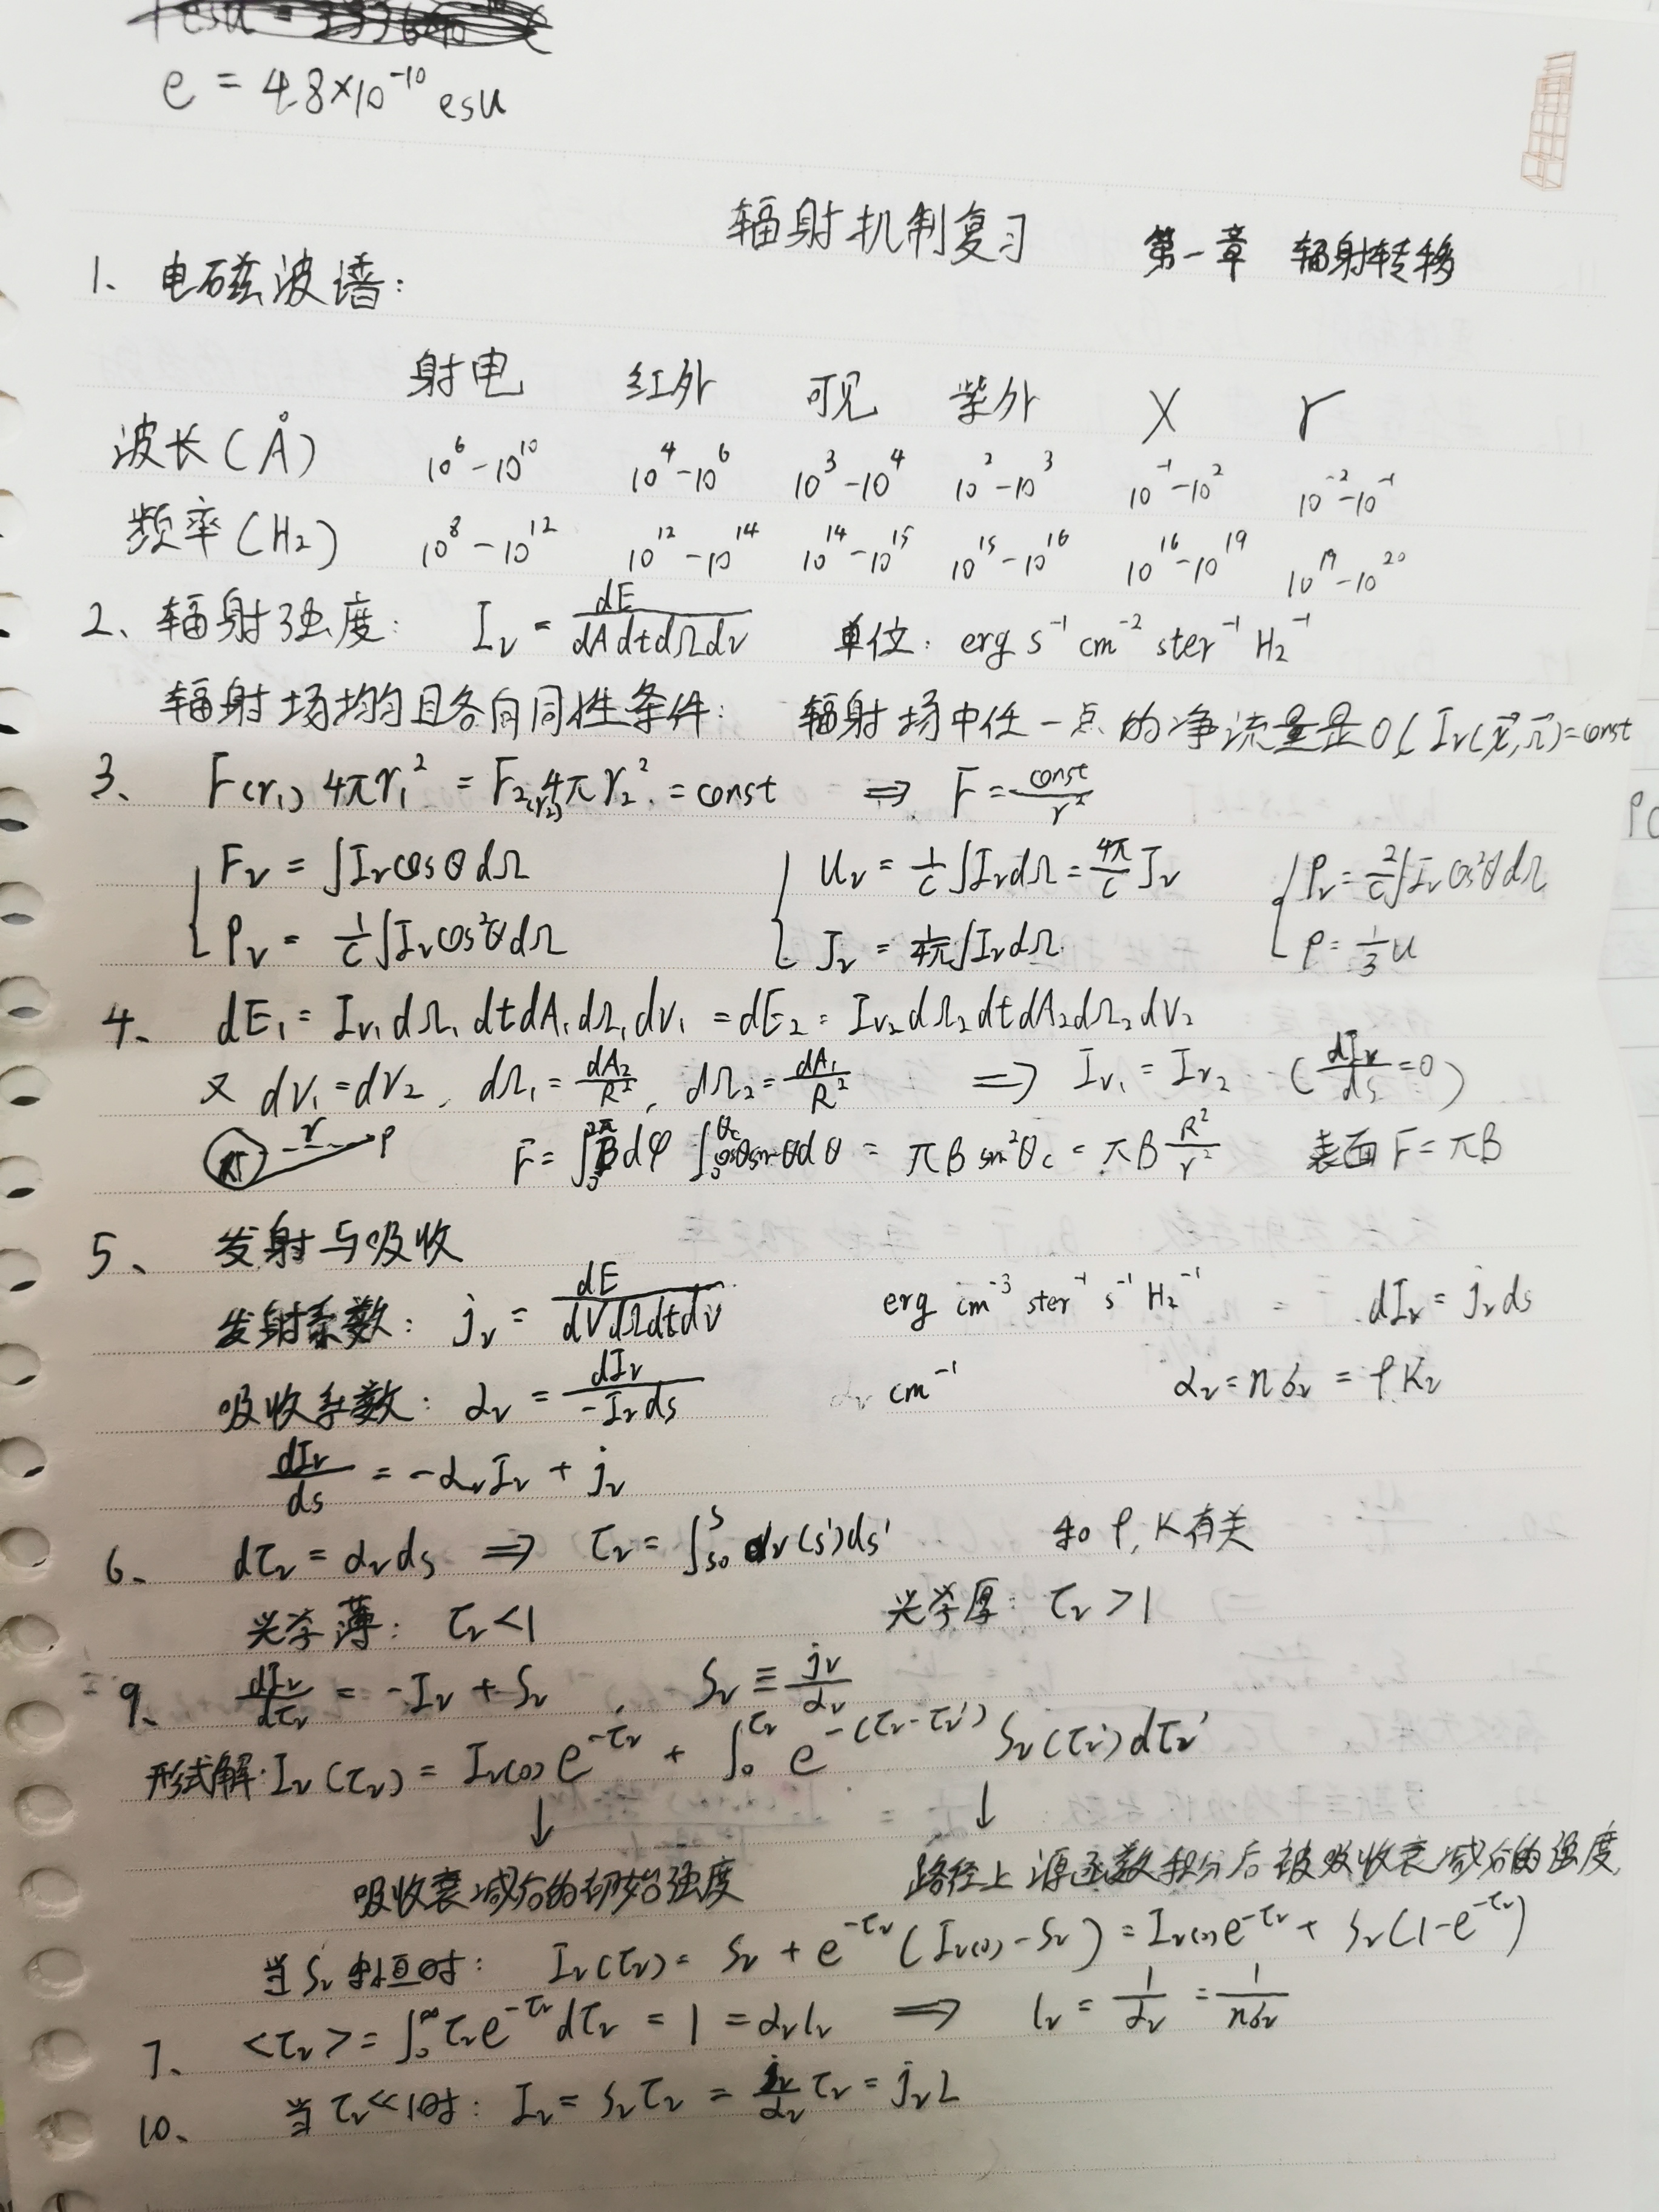 e = 4.8×10⁻¹⁰ esu
辐射机制复习 第一章 辐射转移
1、电磁波谱：
射电 红外 可见 紫外 X γ
波长(Å) 10⁶-10¹⁰ 10⁴-10⁶ 10³-10⁴ 10²-10³ 10⁻¹-10² 10⁻²-10⁻¹
频率(Hz) 10⁸-10¹² 10¹²-10¹⁴ 10¹⁴-10¹⁵ 10¹⁵-10¹⁶ 10¹⁶-10¹⁹ 10¹⁹-10²⁰
2、辐射强度： Iν = dE/(dA dt dΩ dν) 单位：erg s⁻¹ cm⁻² ster⁻¹ Hz⁻¹
辐射场均匀且各向同性条件： 辐射场中任一点的净流量是0 ( Iν(x⃗,n⃗)=const
3、 F(r₁) 4πr₁² = F₂(r₂) 4πr₂² = const ⇒ F = const/r²
Fν = ∫Iν cosθ dΩ Uν = 1/c ∫Iν dΩ = 4π/c Jν Pν = 2/c ∫Iν cos²θ dΩ
Pν = 1/c ∫Iν cos²θ dΩ Jν = 1/4π ∫Iν dΩ P = 1/3 u
4、 dE₁ = Iν₁ dΩ₁ dt dA₁ dΩ₁ dν₁ = dE₂ = Iν₂ dΩ₂ dt dA₂ dΩ₂ dν₂
又 dν₁ = dν₂ , dΩ₁ = dA₂/R² , dΩ₂ = dA₁/R² ⇒ Iν₁ = Iν₂ (dIν/ds = 0)
R r P F = ∫₀^2π B dφ ∫₀^θc cosθ sinθ dθ = πB sin²θc = πB R²/r² 表面 F = πB
5、 发射与吸收
发射系数： jν = dE/(dV dΩ dt dν) erg cm⁻³ ster⁻¹ s⁻¹ Hz⁻¹ dIν = jν ds
吸收系数： αν = dIν/(-Iν ds) cm⁻¹ αν = nσν = ρKν
dIν/ds = -αν Iν + jν
6、 dτν = αν ds ⇒ τν = ∫_s₀^s αν(s')ds' 和 ρ, K 有关
光学薄： τν < 1 光学厚： τν > 1
9、 dIν/dτν = -Iν + Sν , Sν ≡ jν/αν
形式解: Iν(τν) = Iν(0) e^-τν + ∫₀^τν e^-(τν-τν') Sν(τν')dτν'
↓ ↓
吸收衰减后的初始强度 路径上源函数积分后被吸收衰减后的强度
当 Sν 恒时： Iν(τν) = Sν + e^-τν (Iν(0) - Sν) = Iν(0)e^-τν + Sν(1-e^-τν)
7、 <τν> = ∫₀^∞ τν e^-τν dτν = 1 = αν lν ⇒ lν = 1/αν = 1/nσν
10、 当 τν ≪ 1时： Iν = Sν τν = jν/αν τν = jν L